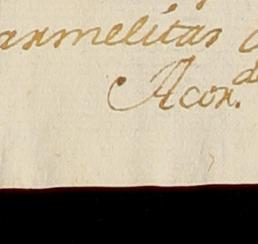 armelitas
Acor.